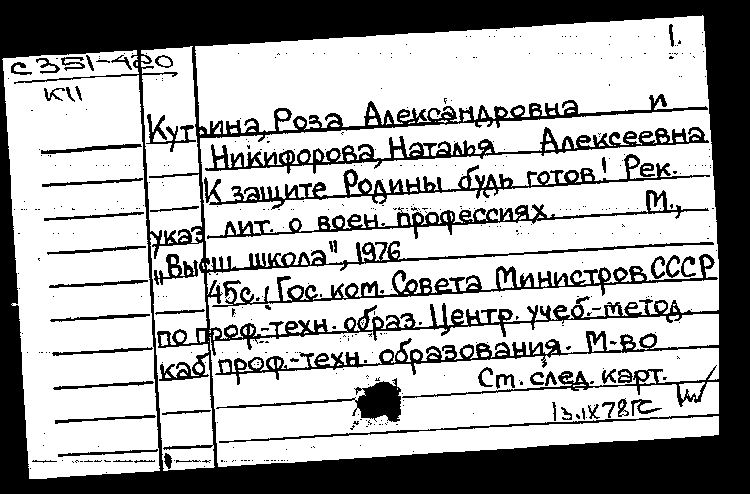 1.
С351-420
К11
Кутьина, Роза Александровна и
Никифорова, Наталья Алексеевна
К защите Родины будь готов! Рек.
указ лит. о воен. профессиях. М.,
„Высш. школа", 1976
45с. (Гос. ком. Совета Министров СССР
по проф.-техн. образ. Центр. учеб.-метод.
каб проф.-техн. образования. М-во
См. след. карт.
13.IX78г